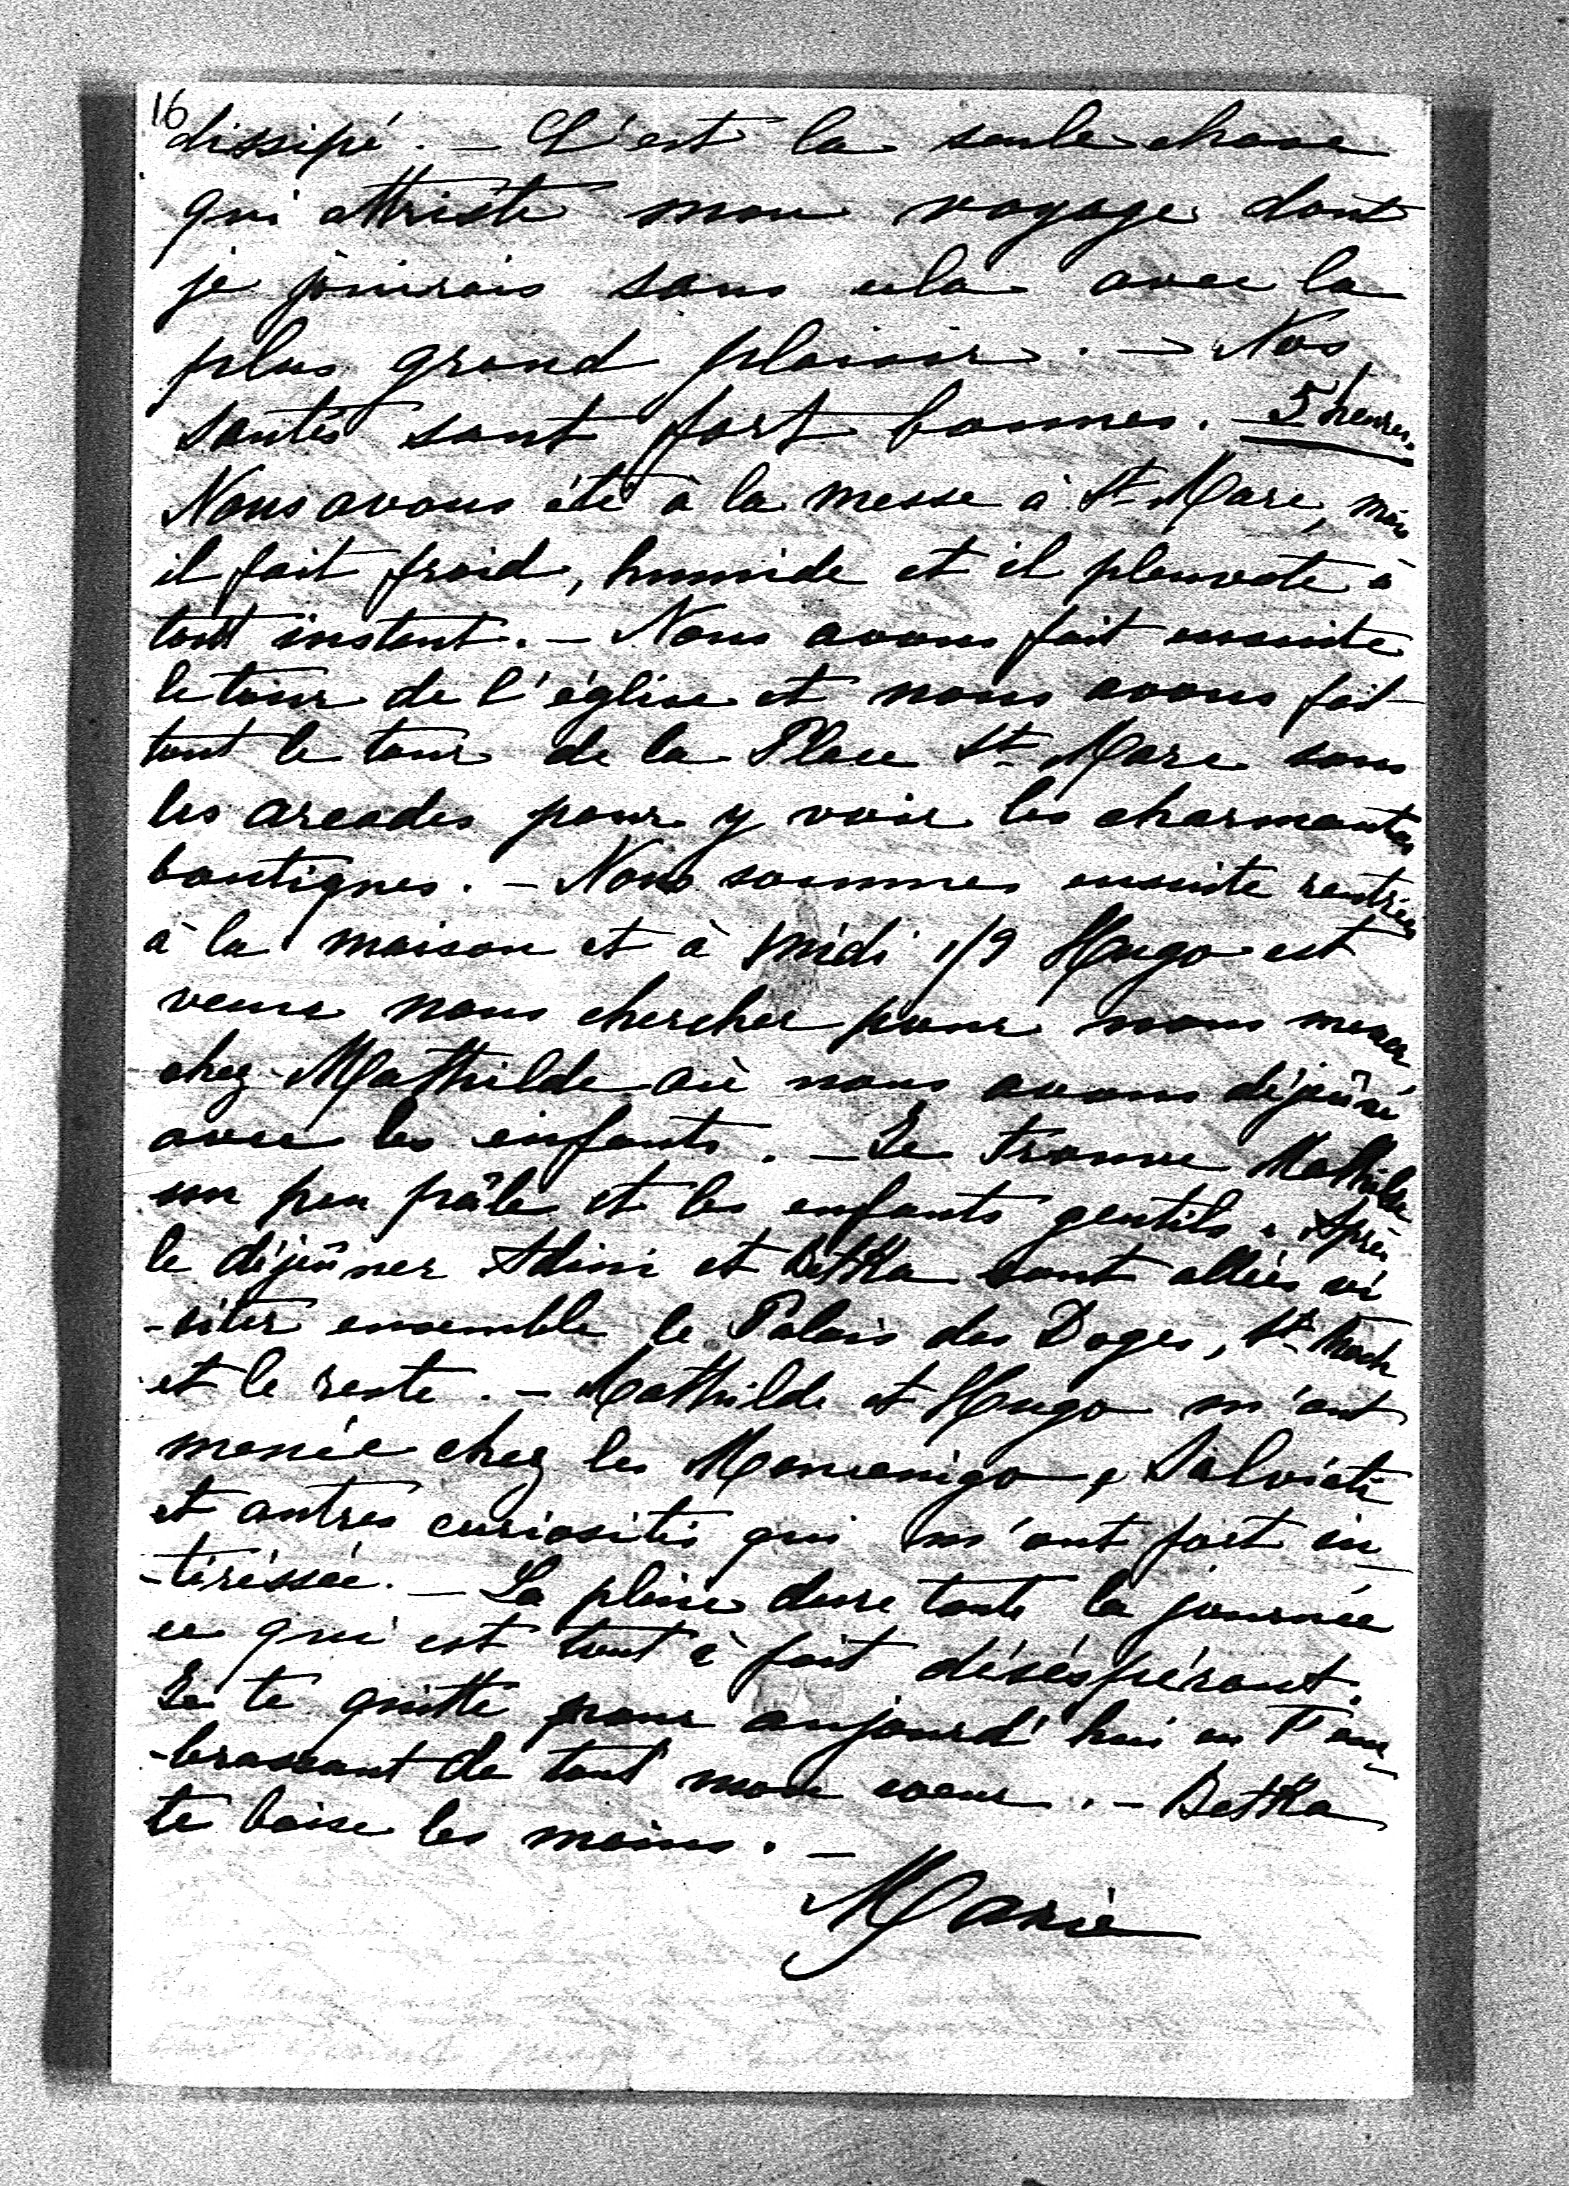 16
dissipé. – C'est la seule chose
qui attriste mon voyage dont
je jouirais sans cela avec la
plus grand plaisir. – Nos
santés sont fort bonnes. – 5 heures.
Nous avons été à la messe à St Marc, mais
il fait froid, humide et il pleuvote à
tout instant. – Nous avons fait ensuite
le tour de l'église et nous avons fait
tout le tour de la Place St Marc sous
les arcades pour y voir les charmantes
boutiques. – Nous sommes ensuite rentrées
à la maison et à midi 1/2 Hugo est
venu nous chercher pour nous mener
chez Mathilde où nous avons déjeûné
avec les enfants. – Je trouve Mathilde
un peu pâle et les enfants gentils. Après
le déjeûner Adini et Betka sont allées vi
-siter ensemble le Palais des Doges, St
et le reste. – Mathilde et Hugo m'ont
menée chez les Mocenigo, Salviati
et autres curiosités qui m'ont fort in
-téressée. – La pluie dure toute la journée
ce qui est tout à fait désespérant.
Je te quitte pour aujourd'hui en t'em
-brassant de tout mon coeur. – Betka
te baise les mains. –
Marie